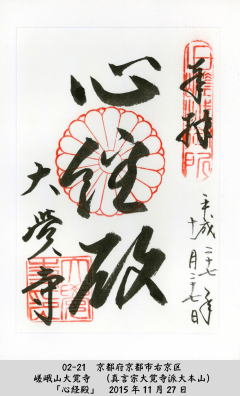 奉拝
平成二十七年
十一月二十七日
心経殿
大覚寺
02-21 京都府京都市右京区
嵯峨山大覚寺 (真言宗大覚寺派大本山)
「心経殿」 2015年11月27日